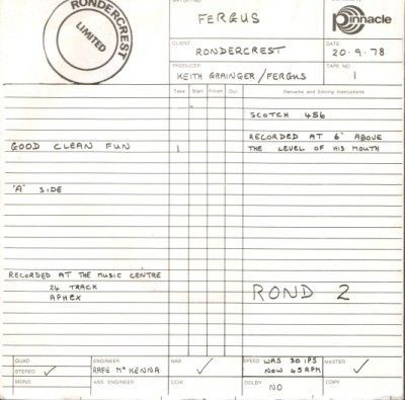 RONDERCREST
LIMITED
FERGUS
Pinnacle
CLIENT
RONDERCREST
DATE
20.9.78
PRODUCER
KEITH GRAINGER/FERGUS
TAPE NO.
1
Take Start Finish Dur. Remarks and Editing Instructions
SCOTCH 456
RECORDED AT 6" ABOVE
GOOD CLEAN FUN 1 THE LEVEL OF HIS MOUTH
'A' SIDE
RECORDED AT THE MUSIC CENTRE
24 TRACK
APHEX
ROND 2
QUAD ENGINEER NAB SPEED WAS 30 IPS MASTER
STEREO ✓ RAFE McKENNA ✓ NOW 45 RPM ✓
MONO ASS ENGINEER CCIR DOLBY NO COPY